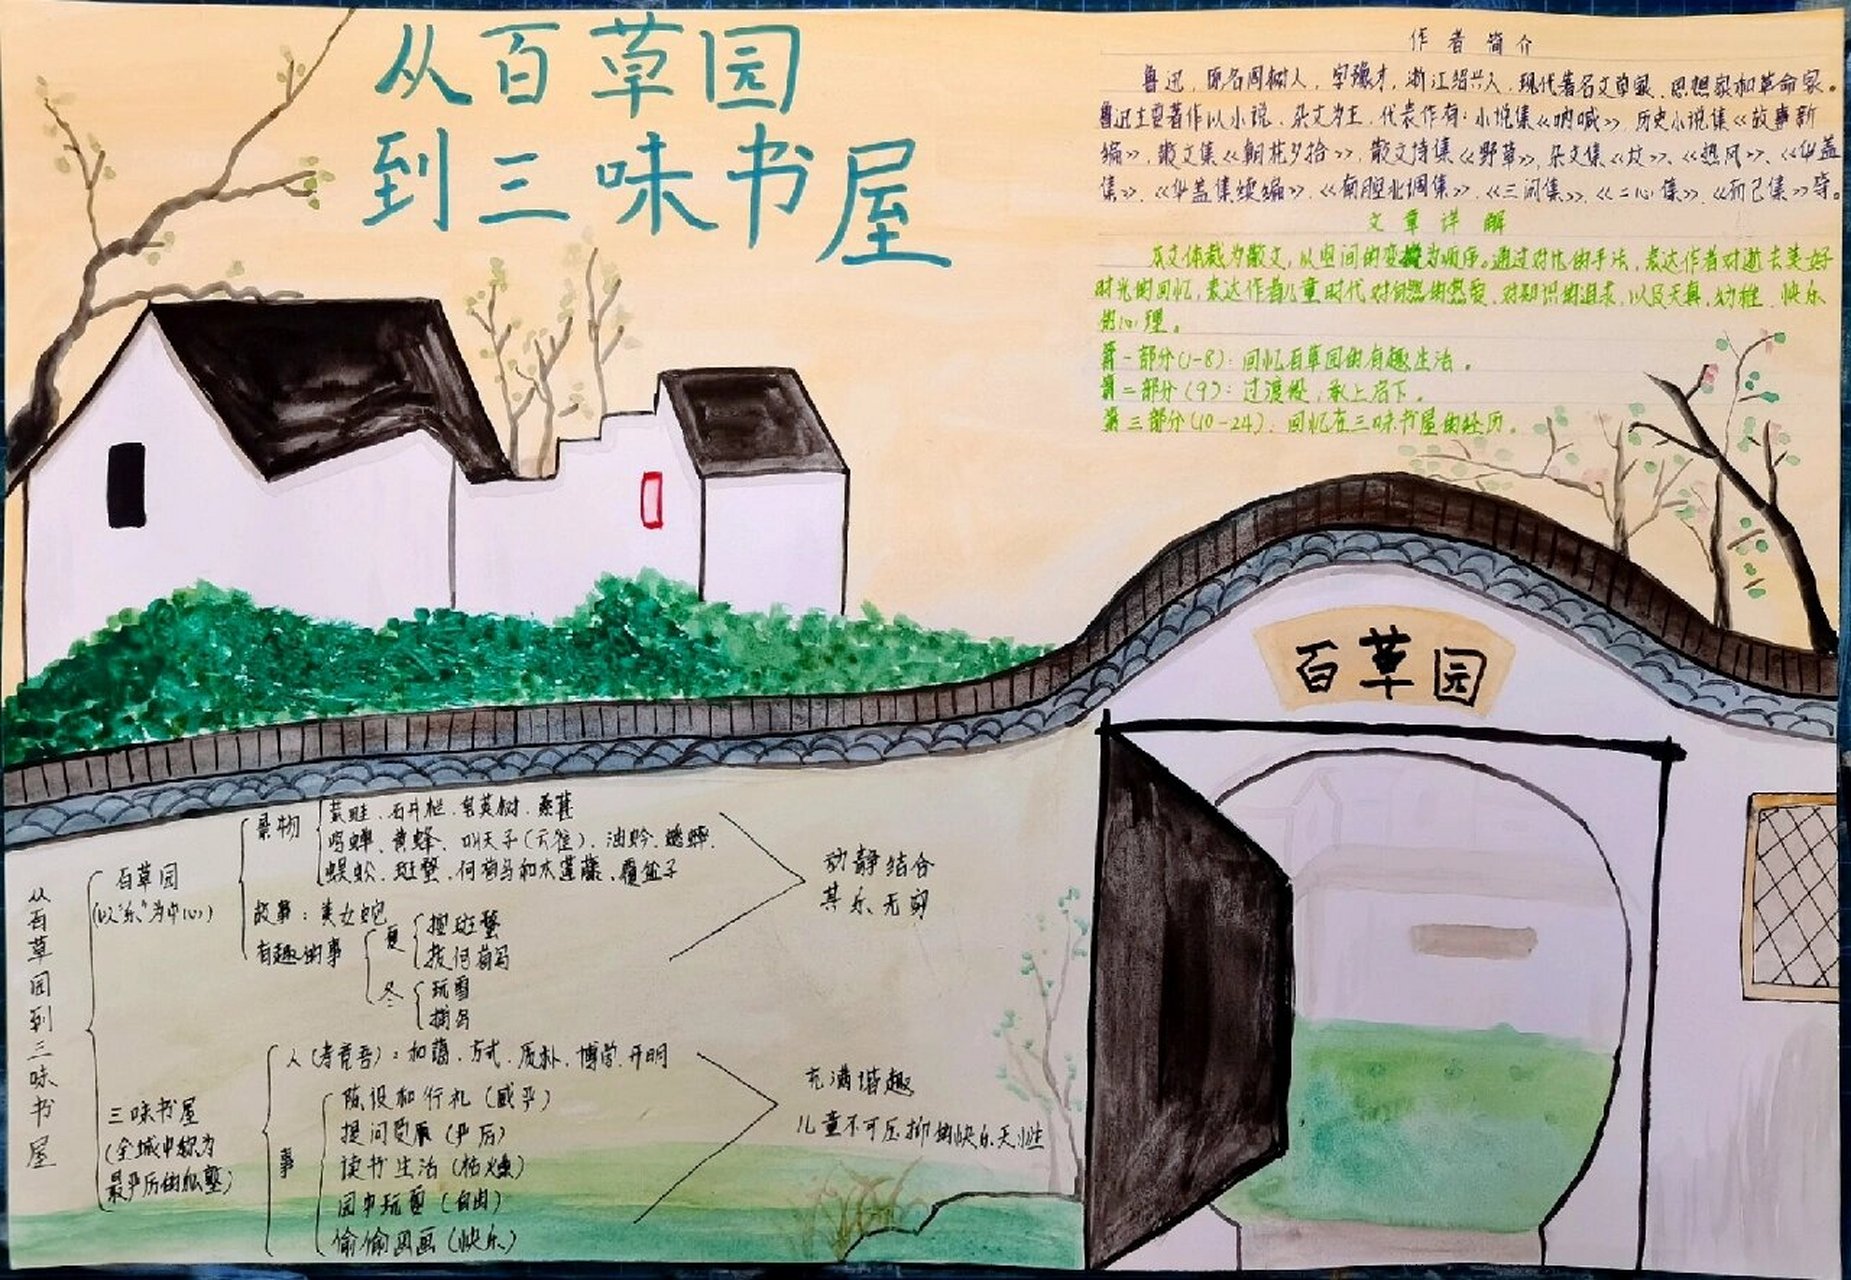 从百草园
到三味书屋
作者简介
鲁迅，原名周树人，字豫才，浙江绍兴人，现代著名文学家、思想家和革命家。
鲁迅主要著作以小说、杂文为主，代表作有：小说集《呐喊》，历史小说集《故事新
编》，散文集《朝花夕拾》，散文诗集《野草》，杂文集《坟》、《热风》、《华盖
集》、《华盖集续编》、《南腔北调集》、《三闲集》、《二心集》、《而已集》等。
文章详解
本文体裁为散文，以空间的变换为顺序。通过对比的手法，表达作者对逝去美好
时光的回忆，表达作者儿童时代对自然的热爱、对知识的追求，以及天真、幼稚、快乐
的心理。
第一部分(1-8)：回忆百草园的有趣生活。
第二部分(9)：过渡段，承上启下。
第三部分(10-24)：回忆在三味书屋的经历。
百草园
从百草园到三味书屋
百草园
(以"乐"为中心)
景物
菜畦、石井栏、皂荚树、桑葚
鸣蝉、黄蜂、叫天子(云雀)、油蛉、蟋蟀、
蜈蚣、斑蝥、何首乌和木莲藤、覆盆子
故事：美女蛇
有趣的事
夏
捉斑蝥
拔何首乌
冬
玩雪
捕鸟
动静结合
其乐无穷
三味书屋
(全城中称为
最严厉的私塾)
人(寿镜吾)：和蔼、方正、质朴、博学、开明
事
陈设和行礼(威严)
提问(严厉)
读书生活(枯燥)
园中玩耍(自由)
偷偷画画(快乐)
充满谐趣
儿童不可压抑的快乐天性